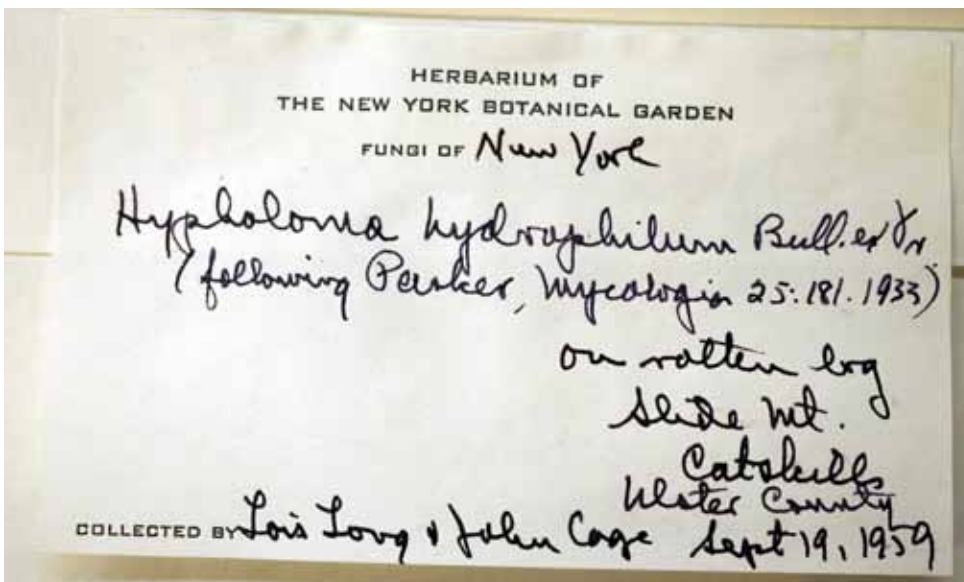 HERBARIUM OF
THE NEW YORK BOTANICAL GARDEN
FUNGI OF New York
Hypholoma hydrophilum Bull. ex Fr.
(following Parker, Mycologia 25:181. 1933)
on rotten log
Slide Mt.
Catskills
Ulster County
COLLECTED BY Lois Long & John Cage Sept 19, 1959